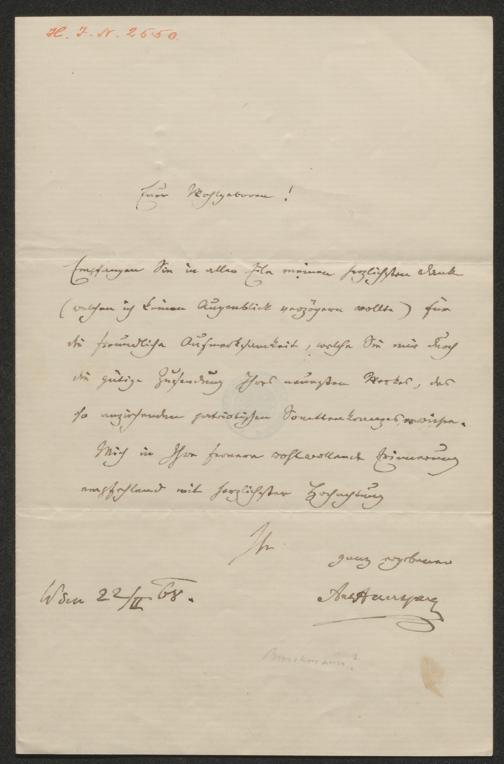 H. I. N. 2550.
Euer Wohlgeboren!
Empfangen Sie in aller Eile meinen herzlichsten Dank
(welchen ich keinen Augenblick verzögern wollte) für
die freundliche Aufmerksamkeit, welche Sie mir durch
die gütige Zusendung Ihres neuesten Werkes, des
so anziehenden patriotischen Sonettenkranzes, erwiesen.
Mich in Ihre fernere wohlwollende Erinnerung
empfehlend mit herzlichster Hochachtung
Ihr
ganz ergebener
Wien 22/II 68.